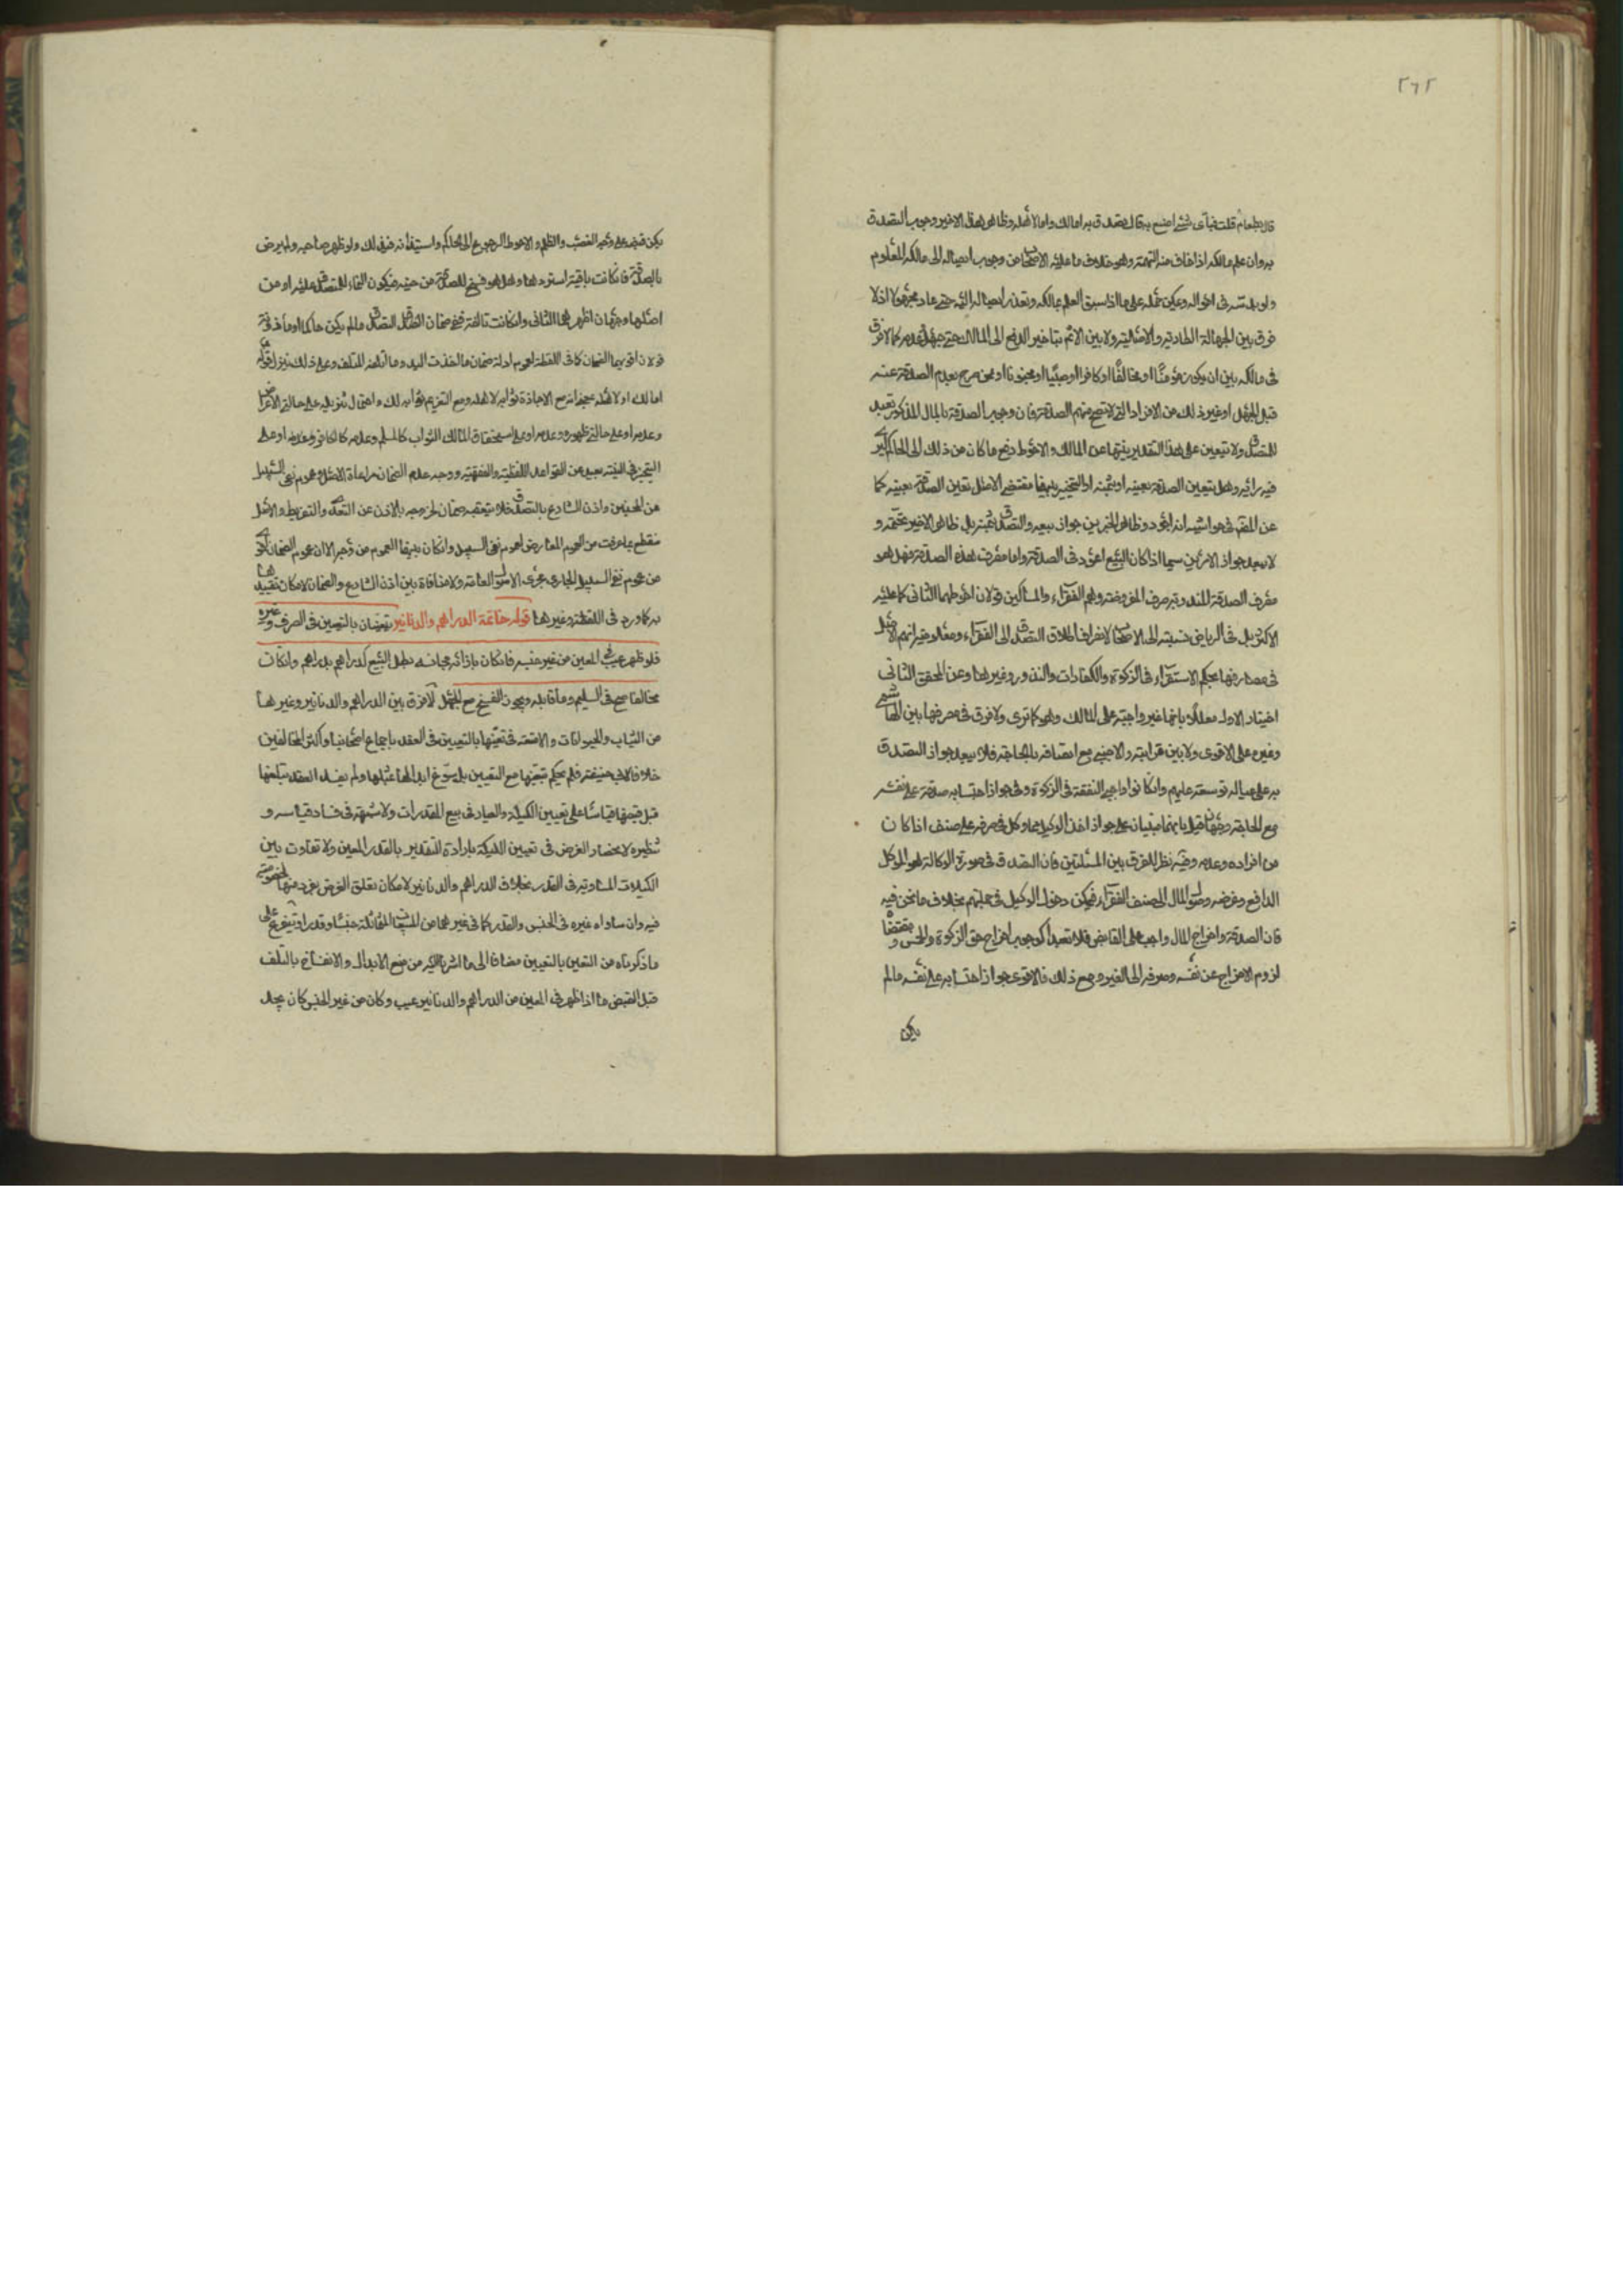 ٢٦٢
قال بطعام قلت فبأى شئ اصنع به قال تصدق به اما لك واما لأهله وظاهر هذا الاخير وجوب التصدق
به وان علم مالكه اذا خاف منه التهمة وهو خلاف ما عليه الاصحاب من وجوب ايصاله الى مالكه المعلوم
ولو بدسّه فى امواله ويمكن حمله على ما اذا سبق العلم بمالكه وتعذر ايصاله اليه حتى عاد مجهولا اذ لا
فرق بين الجهالة الطارية والاصلية ولا بين الاثم بتأخير الدفع الى المالك حتى جهل وعدمه كما لا فرق
فى مالكه بين ان يكون مؤمنًا او مخالفًا او كافرا او صبيًّا او مجنونا او ممن صرح بعدم الصدقة عنه
قبل الجهل او غير ذلك من الافراد التى لا تصح منهم الصدقة فان وجوب الصدقة بالمال المذكور تعبد
للتصدق ولا تتعين على هذا التقدير نيتها عن المالك والاحوط دفع ما كان من ذلك الى الحاكم ليرى
فيه رأيه وهل يتعين الصدقة بعينه او بثمنه او التخيير بينهما مقتضى الاصل تعين الصدقة بعينه كما
عن المصنف فى حواشيه انه اجود وظاهر الخبرين جواز بيعه والتصدق بثمنه بل ظاهر الاخير تحتمه و
لا يبعد جواز الامرين سيما اذا كان البيع اعود فى الصدقة واما مصرف هذه الصدقة فهل هو
مصرف الصدقة المندوبة مصرف المفروضة وهم الفقراء والمساكين قولان احوطهما الثانى كما عليه
الاكثر بل فى الرياض نسبته الى الاصحاب لانصراف اطلاق التصدق الى الفقراء ومعلومية انهم الاصل
فى مصارفها بحكم الاستقراء فى الزكوة والكفارات والنذور وغيرها وعن المحقق الثانى
اختيار الاول معللًا بانها غير واجبة على المالك وهو كما ترى ولا فرق فى مصرفها بين الهاشمى
وغيره على الاقوى ولا بين قرابته والاجنبى مع اتصافه بالحاجة فلا يبعد جواز التصدق
به على عياله توسعة عليهم وان كانوا واجبى النفقة فى الزكوة وفى جواز احتسابه صدقة على نفسه
مع الحاجة وجهان قيل بانهما مبتنيان على جواز اخذ الوكيل مما وكل فى صرفه على صنف اذا كان
من افراده وعدمه وفيه نظر للفرق بين المسئلتين فان التصدق فى صورة الوكالة هو الموكل
الدافع وغرضه وصول المال الى صنف الفقراء فيمكن دخول الوكيل فى جملتهم بخلاف ما نحن فيه
فان الصدقة واخراج المال واجب على القابض فلا تعبدا كوجوب اخراج حق الزكوة والخمس ومقتضاه
لزوم الاخراج عن نفسه وصرفه الى الغير ومع ذلك فالاقوى جواز احتسابه على نفسه ما لم
يكن
يكن قبضه على وجه الغصب والظلم والاحوط الرجوع الى الحاكم واستيذانه فى ذلك ولو ظهر صاحبه ولم يرض
بالصدقة فان كانت باقية استردها وهل هو فسخ للصدقة من حينه فيكون النماء للمتصدق عليه او من
اصلها وجهان اظهرهما الثانى وان كانت تالفة ففى ضمان المتصدق ما لم يكن حاكما او مأذونه
قولان اقويهما الضمان كما فى اللقطة لعموم ادلة ضمان ما اخذت اليد وما اتلفه المتلف وعلى ذلك ينزل قوله
اما لك او لاهله بمعنى انه مع الاجازة ثوابه لاهله ومع التغريم ثوابه لك واحتمال تنزيله على حالتى الاعراض
وعدمه او على حالتى ظهوره وعدمه او على استحقاق المالك الثواب كالمسلم وعدمه كالكافر وغيره او على
التخيير فى النية بعيد عن القواعد اللفظية والفقهية ووجه عدم الضمان مراعاة الاصل وعموم نفى السبيل
عن المحسنين واذن الشارع بالتصدق فلا يتعقبه ضمان لخروجه بالاذن عن التعدى والتفريط والاصل
منقطع بما عرفت من العموم المعارض لعموم نفى السبيل وان كان بينهما العموم من وجه الا ان عموم الضمان اقوى
من عموم نفى السبيل الجارى مجرى الاصول العامة ولا منافاة بين اذن الشارع والضمان لامكان تقييدها
به كما ورد فى اللقطة وغيرها قوله خاتمة الدراهم والدنانير يتعينان بالتعيين فى الصرف وغيره
فلو ظهر عيب فى المعين من غير جنسه فان كان بازائه مجانسه بطل البيع كدراهم بدراهم وان كان
مخالفا صح فى السليم وما قابله ويجوز الفسخ مع الجهل لا فرق بين الدراهم والدنانير وغيرهما
من الثياب والحيوانات والامتعة فى تعيّنها بالتعيين فى العقد باجماع اصحابنا واكثر المخالفين
خلافا لابى حنيفة فلم يحكم بتعيّنها مع التعيين بل سوّغ ابدالها بمثلها ولم يفسد العقد بتلفها
قبل قبضها قياسًا على تعيين المكيال والعيار فى بيع المقدرات ولا شبهة فى فساد قياسه و
تنظيره لانحصار الغرض فى تعيين المكيلة بارادة التقدير بالقدر المعين ولا تفاوت بين
المكيلات المتساوية فى القدر بخلاف الدراهم والدنانير لامكان تعلق الغرض بفرد منها لخصوصية
فيه وان ساواه غيره فى الجنس والقدر كما فى غيرهما من المبيعات المتماثلة جنسًا وقدرا ويتفرع على
ما ذكرناه من التعين بالتعيين مضافا الى ما اشرنا اليه من منع الابدال والانفساخ بالتلف
قبل القبض ما اذا ظهر فى المعين من الدراهم والدنانير عيب وكان من غير الجنس كان يجد